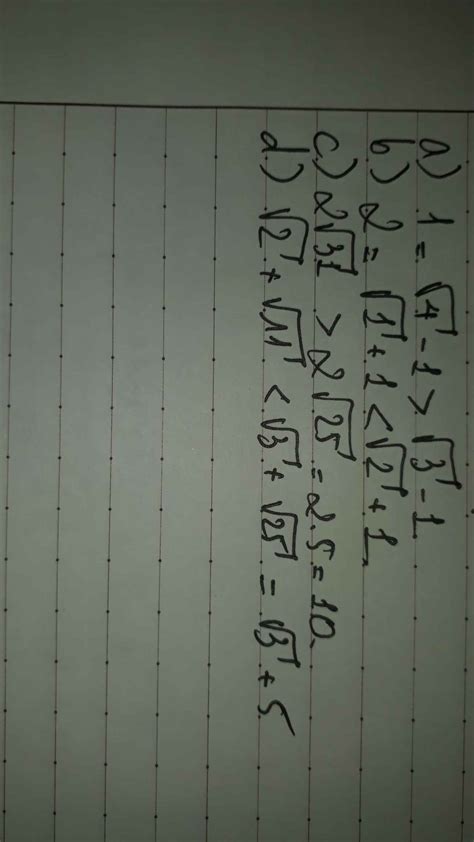 a) 1 = √4 - 1 > √3 - 1
b) 2 = √1 + 1 < √2 + 1
c) 2√31 > 2√25 = 2.5 = 10
d) √2 + √11 < √3 + √25 = √3 + 5